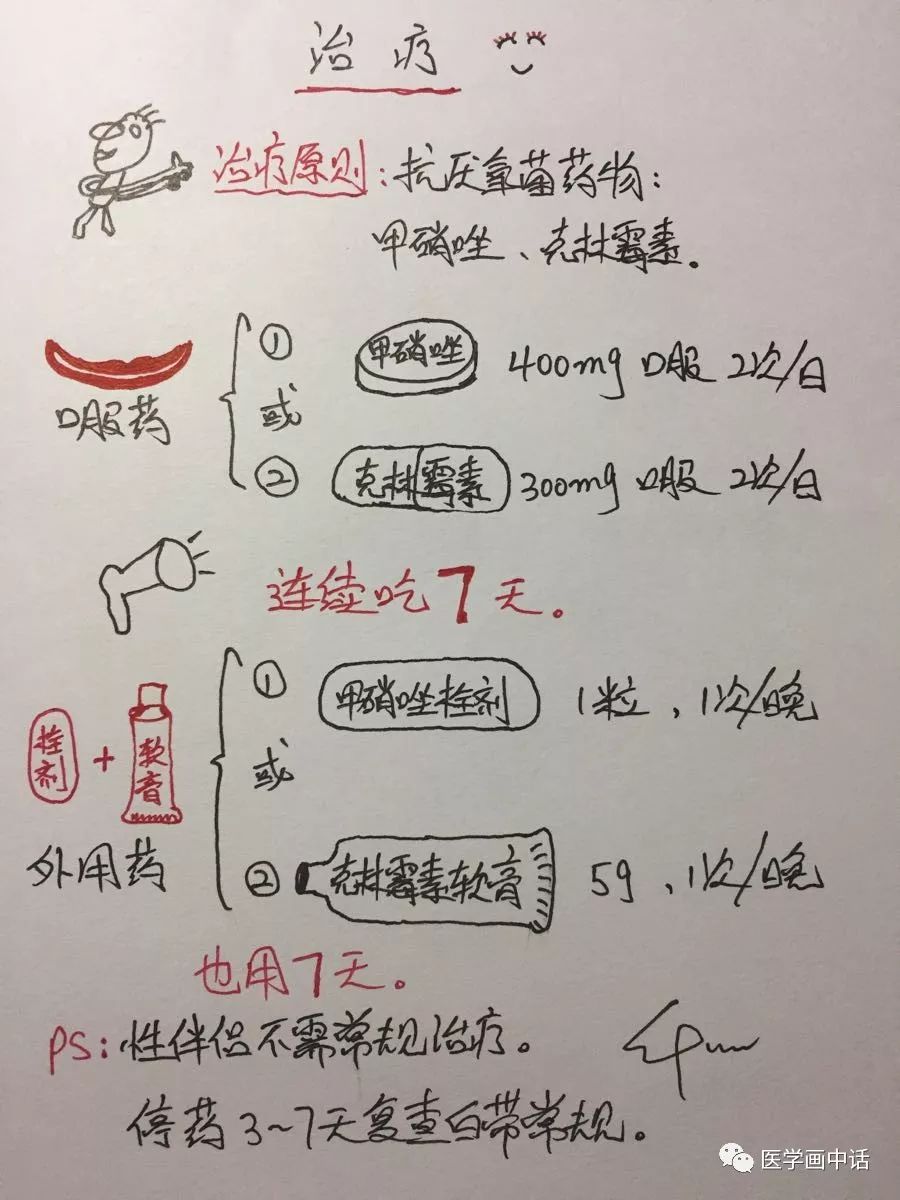 治疗
治疗原则:抗厌氧菌药物:
甲硝唑、克林霉素。
口服药
① 甲硝唑 400mg 口服 2次/日
或
② 克林霉素 300mg 口服 2次/日
连续吃7天。
栓剂 + 软膏
外用药
① 甲硝唑栓剂 1粒、1次/晚
或
② 克林霉素软膏 5g、1次/晚
也用7天。
PS:性伴侣不需常规治疗。
停药3~7天复查白带常规。
医学画中话